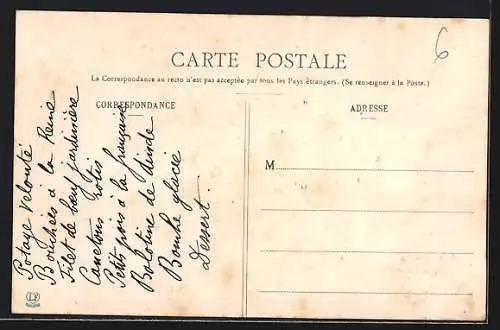 CARTE POSTALE
La Correspondance au recto n'est pas acceptée par tous les Pays étrangers. (Se renseigner à la Poste.)
CORRESPONDANCE
ADRESSE
6
M
Potage velouté
Bouchées à la Reine
Filet de bœuf jardinière
Canetons rotis
Petits pois à la française
Balotine de dinde
Bombe glacée
Dessert.
LF